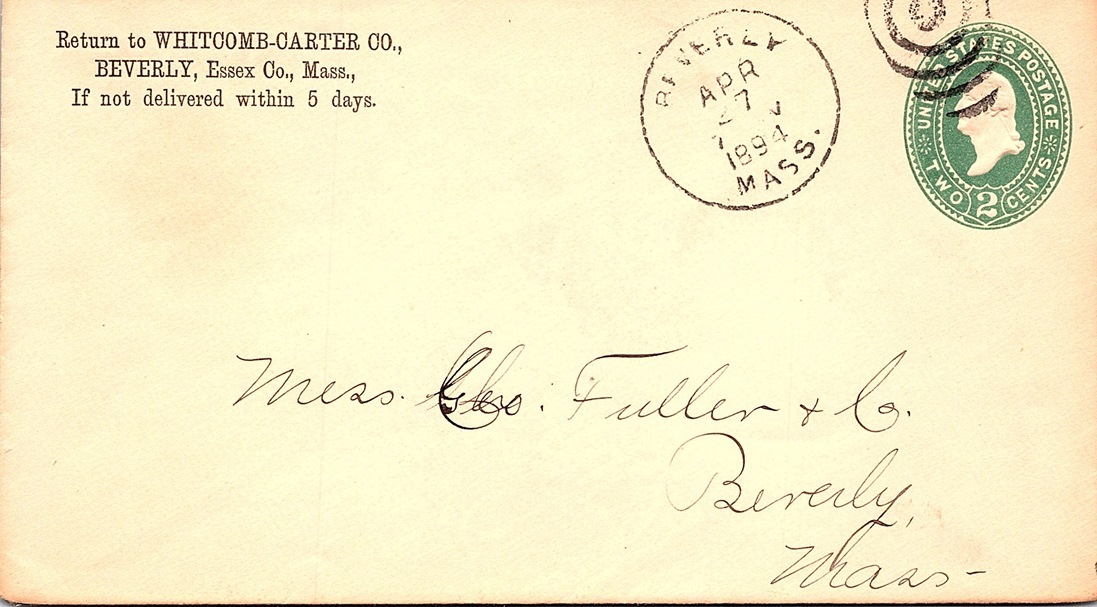 Return to WHITCOMB-CARTER CO.,
BEVERLY, Essex Co., Mass.,
If not delivered within 5 days.
BEVERLY
APR
27
7
1894
MASS.
UNITED STATES POSTAGE
TWO 2 CENTS
Mess. Geo. Fuller & Co.
Beverly,
Mass-